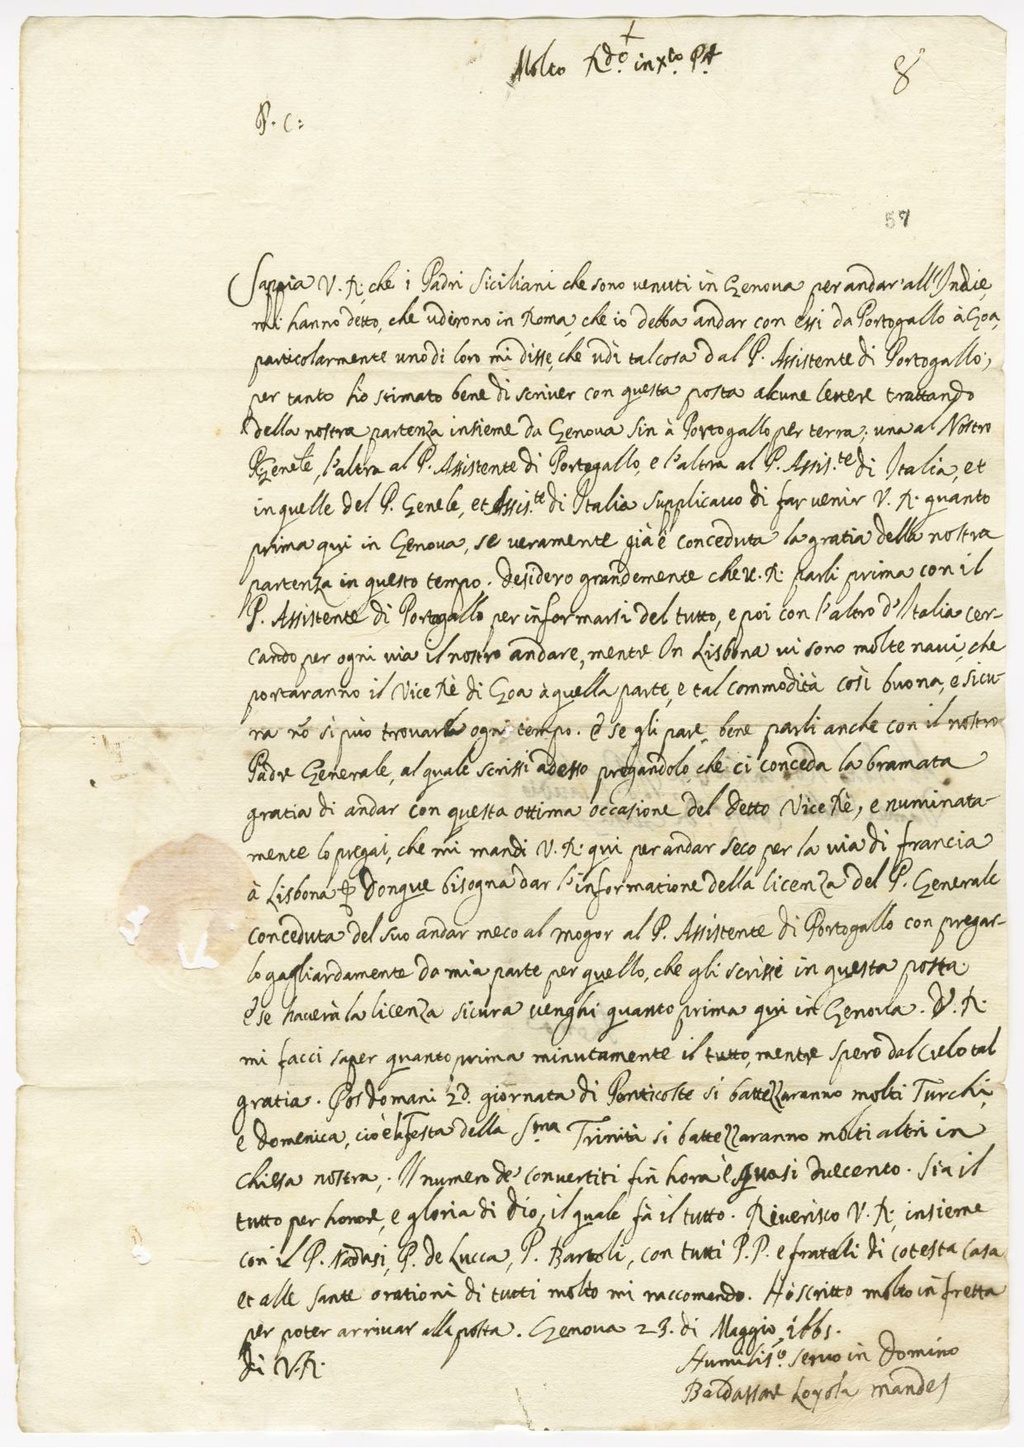 +
Molto Rdo. in Xto P.
8
P. C:
57
Sappia V. R. che i Padri Siciliani che sono venuti in Genova per andar all'Indie,
mi hanno detto, che udirono in Roma, che io debba andar con essi da Portogallo à Goa,
particolarmente uno di loro mi disse, che udì tal cosa dal P. Assistente di Portogallo;
per tanto hò stimato bene di scriver con questa posta alcune lettere trattando
della nostra partenza insieme da Genova sin à Portogallo per terra; una al Nostro
P. Genéle, l'altra al P. Assistente di Portogallo, e l'altra al P. Assis.te di Italia, et
in quelle del P. Genele, et Assis.te di Italia supplicavo di far venir V. R. quanto
prima qui in Genova, se veramente già è conceduta la gratia della nostra
partenza in questo tempo. Desidero grandemente che V. R. parli prima con il
P. Assistente di Portogallo per informarsi del tutto, e poi con l'altro d'Italia cer-
cando per ogni via il nostro andare, mentre In Lisbona vi sono molte navi, che
portaranno il Vice Rè di Goa à quella parte, e tal commodità così buona, e sicu-
ra nõ si può trovarla ogni tempo. E se gli pare bene parli anche con il nostro
Padre Generale, al quale scrissi adesso pregandolo, che ci conceda la bramata
gratia di andar con questa ottima occasione del detto Vice Rè, e numinata-
mente lo pregai, che mi mandi V. R. qui per andar seco per la via di francia
à Lisbona Donque bisogna dar l'informatione della licenza del P. Generale
conceduta del suo andar meco al mogor al P. Assistente di Portogallo con pregar-
lo gagliardamente da mia parte per quello, che gli scrissi in questa posta
e se haverà la licenza sicura venghi quanto prima qui in Genova. V. R.
mi facci saper quanto prima minutamente il tutto, mentre spero dal Cielo tal
gratia. Posdomani 2d. giornata di Penticoste si battezzaranno molti Turchi,
e Domenica, cioè la festa della Sma Trinità si battezzaranno molti altri in
chiesa nostra. Il numero de' convertiti fin hora è quasi duecento. Sia il
tutto per honore, e gloria di Dio, il quale fà il tutto. Riverisco V. R. insieme
con il P. Nadasi, P. de Lucca, P. Bartoli, con tutti P.P. e fratelli di cotesta Casa
et alle sante orationi di tutti molto mi raccomando. Hò scritto molto in fretta
per poter arrivar alla posta. Genova 23. di Maggio 1661.
di V. R.
Humilis.o servo in Domino
Baldassare Loyola Mandes